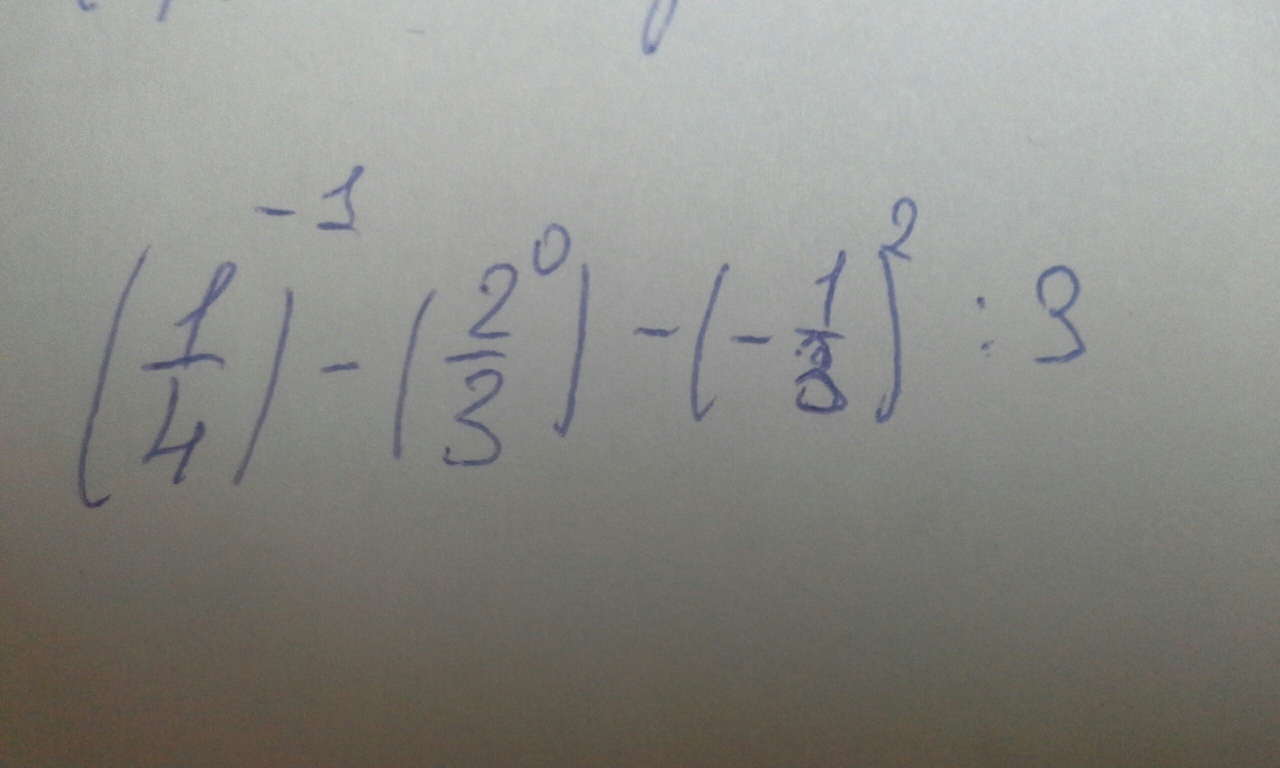 (1/4)^-1 - (2^0/3) - (-1/3)^2 : 3